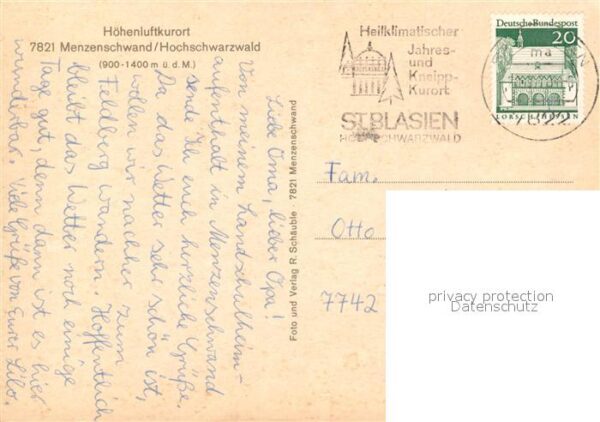 Höhenluftkurort
7821 Menzenschwand/Hochschwarzwald
(900-1400 m ü. d. M.)
Liebe Oma, lieber Opa!
Von meinem Landschulheim-
aufenthalt in Menzenschwand
sende ich euch herzliche Grüße.
Da das Wetter sehr schön ist,
wollen wir nachher zum
Feldberg wandern. Hoffentlich
bleibt das Wetter noch einige
Tage gut, denn dann ist es hier
wunderbar. Viele Grüße von Eurer Lilo.
Foto und Verlag R. Schäuble 7821 Menzenschwand
Heilklimatischer
Jahres-
und
Kneipp-
Kurort
ST. BLASIEN
HOCHSCHWARZWALD
Deutsche Bundespost
20
LORSCH/HESSEN
7822
Fam.
Otto
7742
privacy protection
Datenschutz